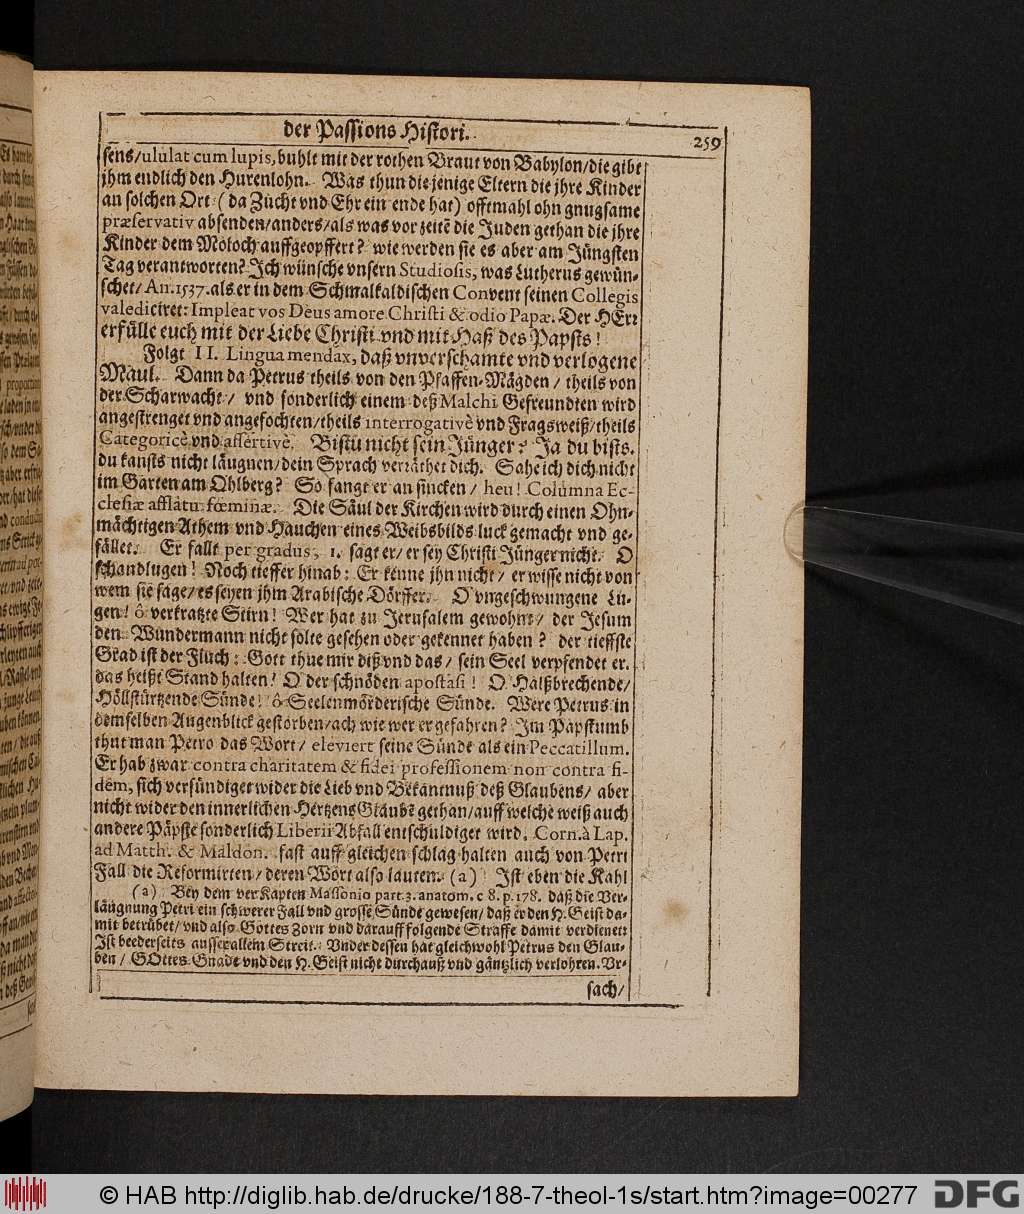 der Passions Histori.
259
sens/ululat cum lupis, buhlt mit der rothen Braut von Babylon/die gibt
jhm endlich den Hurenlohn. Was thun die jenige Eltern die jhre Kinder
an solchen Ort (da Zucht vnd Ehr ein ende hat) offtmahl ohn gnugsame
præservativ absenden/anders/als was vor zeitē die Juden gethan die jhre
Kinder dem Moloch auffgeopffert? wie werden sie es aber am Jüngsten
Tag verantworten? Ich wünsche vnsern Studiosis, was Lutherus gewün-
schet/ An. 1537. als er in dem Schmalkaldischen Convent seinen Collegis
valediciret: Impleat vos Deus amore Christi & odio Papæ. Der HErr
erfülle euch mit der Liebe Christi vnd mit Haß des Papsts!
Folgt II. Lingua mendax, daß vnverschamte vnd verlogene
Maul. Dann da Petrus theils von den Pfaffen-Mägden/ theils von
der Scharwacht/ vnd sonderlich einem deß Malchi Gefreundten wird
angestrenget vnd angefochten/theils interrogativè vnd Fragsweiß/theils
Categoricè vnd assertivè. Bistu nicht sein Jünger? Ja du bists.
du kansts nicht läugnen/dein Sprach verräthet dich. Sahe ich dich nicht
im Garten am Ohlberg? So fangt er an sincken/ heu! Columna Ec-
clesiæ afflatu fœminæ. Die Säul der Kirchen wird durch einen Ohn-
mächtigen Athem vnd Hauchen eines Weibsbilds luck gemacht vnd ge-
fället. Er fallt per gradus, 1. sagt er/ er sey Christi Jünger nicht. O
schandlugen! Noch tieffer hinab: Er kenne jhn nicht/ er wisse nicht von
wem sie sage/es seyen jhm Arabische Dörffer. O vngeschwungene Lu-
gen! ô verkratzte Stirn! Wer hat zu Jerusalem gewohnt/ der Jesum
den Wundermann nicht solte gesehen oder gekennet haben? der tieffste
Grad ist der Fluch: Gott thue mir diß vnd das/ sein Seel verpfendet er.
das heißt Stand halten! O der schnöden apostasi! O Halßbrechende/
Höllstürtzende Sünde! ô Seelenmörderische Sünde. Were Petrus in
demselben Augenblick gestorben/ach wie wer er gefahren? Im Papstumb
thut man Petro das Wort/ eleviert seine Sünde als ein Peccatillum.
Er hab zwar contra charitatem & fidei professionem non contra fi-
dem, sich versündiget wider die Lieb vnd Bekantnuß deß Glaubens/ aber
nicht wider den innerlichen Hertzens Glaubē gethan/auff welche weiß auch
andere Päpste sonderlich Liberii Abfall entschuldiget wird. Corn. à Lap.
ad Matth. & Maldon. fast auff gleichen schlag halten auch von Petri
Fall die Reformirten/ deren Wort also lauten. (a) Ist eben die Kahl
(a) Bey dem ver Kapten Massonio part. 3. anatom. c 8. p. 178. daß die Ver-
läugnung Petri ein schwerer Fall vnd grosse Sünde gewesen/ daß er den H. Geist da-
mit betrübet/ vnd also Gottes Zorn vnd darauff folgende Straffe damit verdienet:
Ist beederseits ausser allem Streit. Vnder dessen hat gleichwohl Petrus den Glau-
ben/ GOttes Gnade vnd den H. Geist nicht durchauß vnd gäntzlich verlohren. Vr-
sach/
© HAB http://diglib.hab.de/drucke/188-7-theol-1s/start.htm?image=00277
DFG